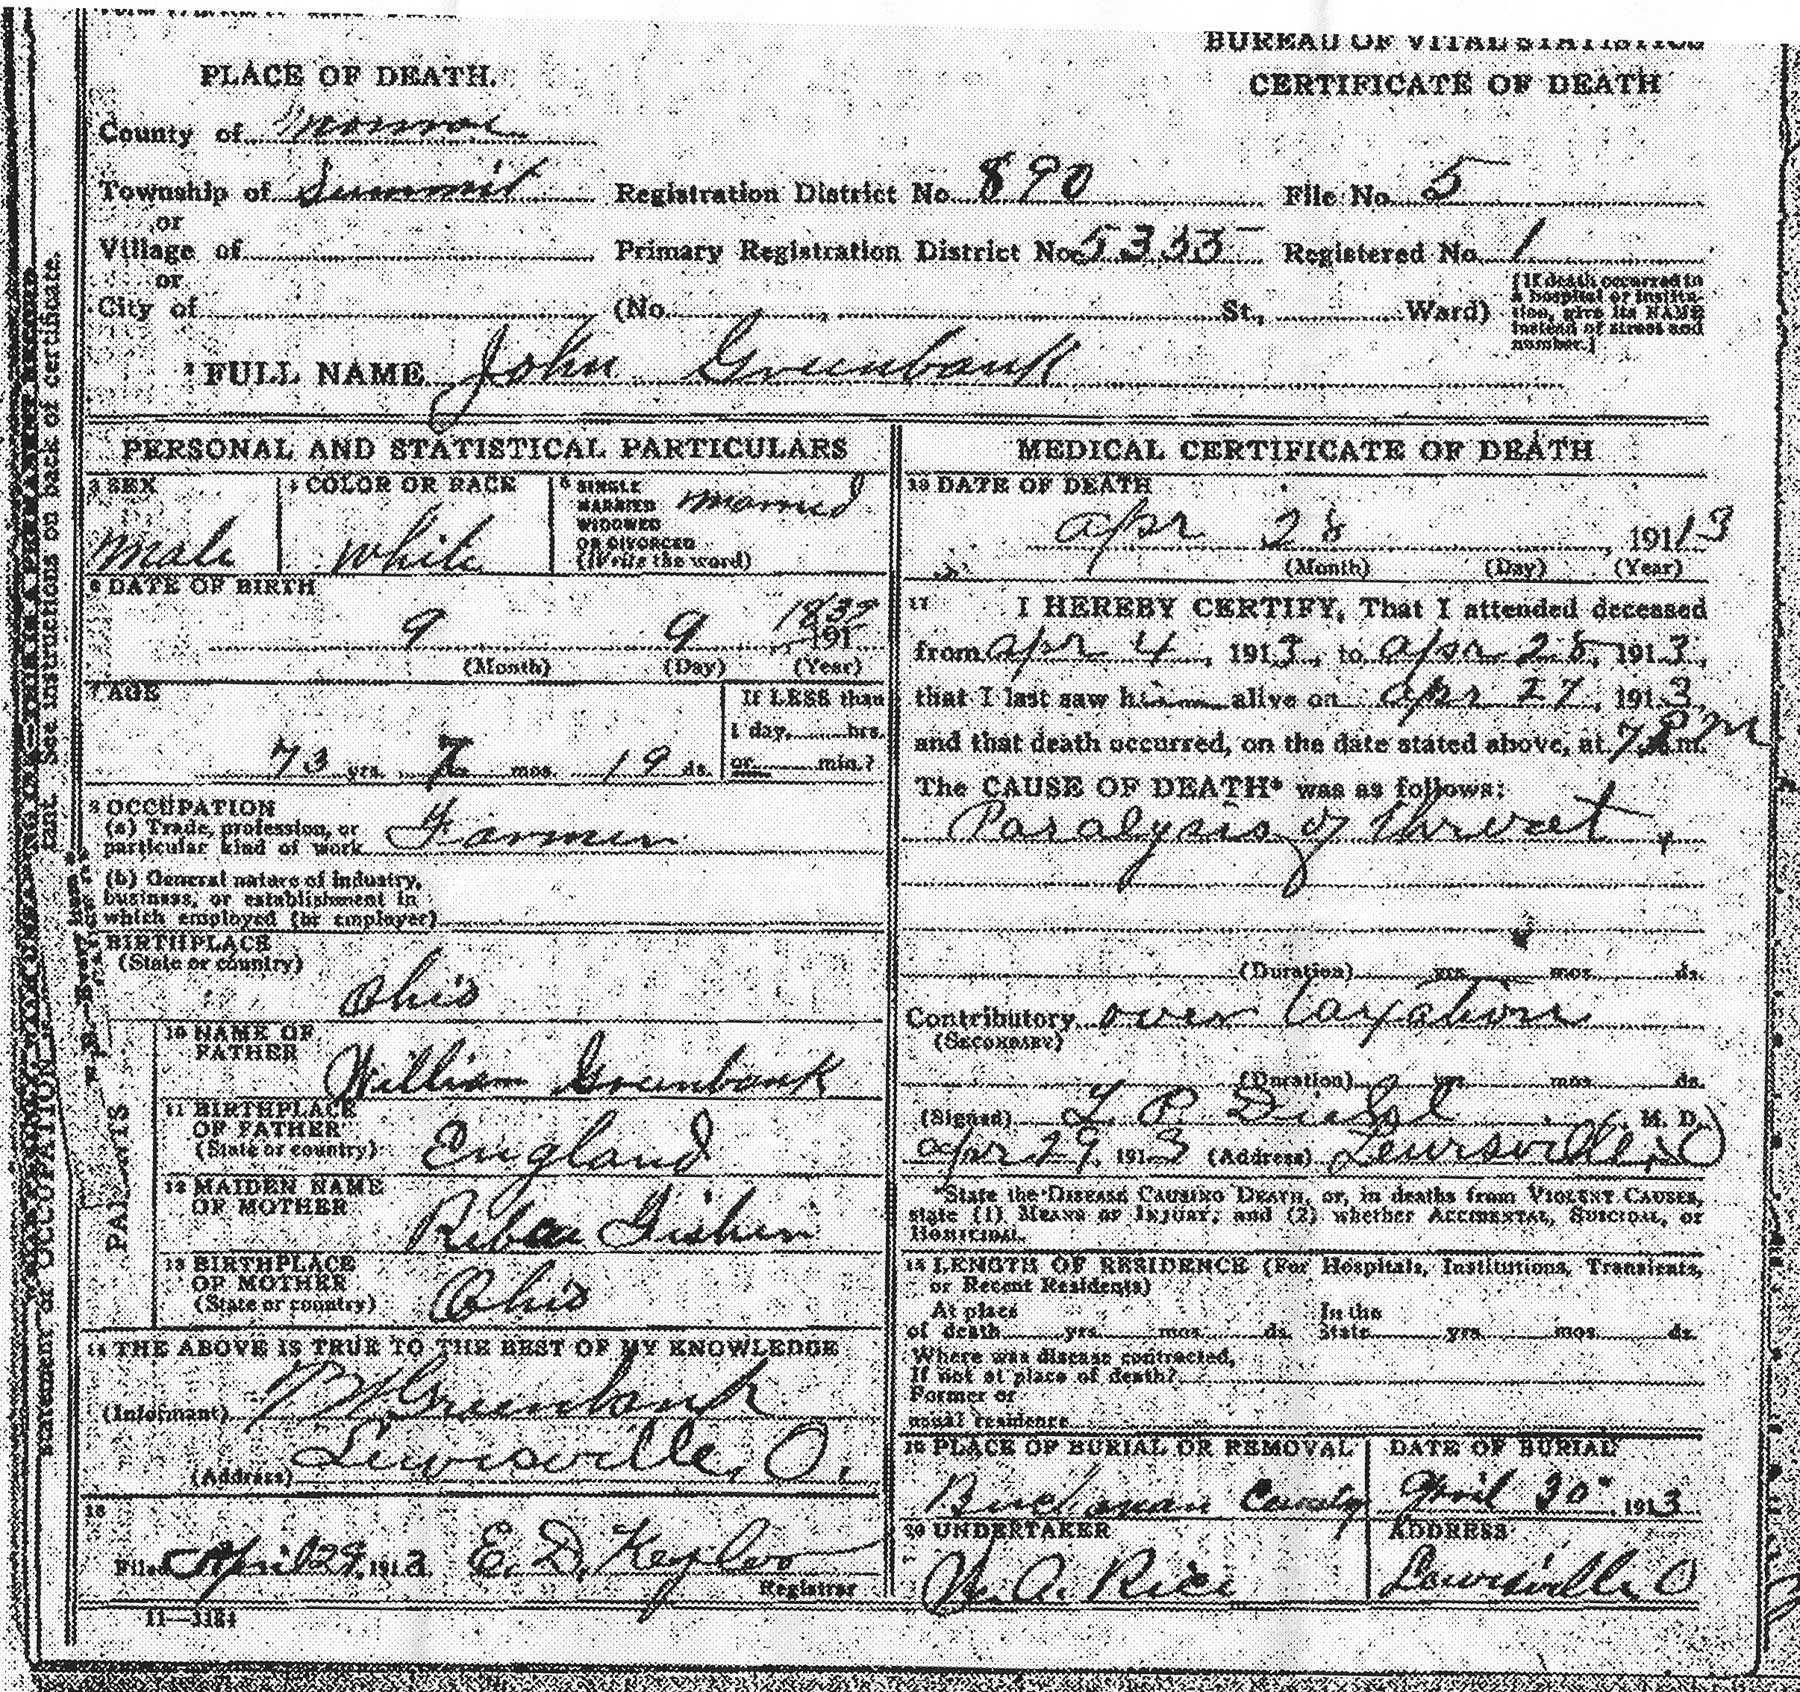 BUREAU OF VITAL STATISTICS
PLACE OF DEATH.
CERTIFICATE OF DEATH
County of Monroe
Township of Summit Registration District No. 890 File No. 5
or
Village of Primary Registration District No. 5335 Registered No. 1
or
City of (No. St., Ward)
[If death occurred in
a hospital or institu-
tion, give its NAME
instead of street and
number.]
2 FULL NAME John Greenbank
PERSONAL AND STATISTICAL PARTICULARS
3 SEX
male
4 COLOR OR RACE
white
5 SINGLE
MARRIED
WIDOWED
OR DIVORCED
(Write the word)
married
6 DATE OF BIRTH
9 9 191
(Month) (Day) (Year)
7 AGE
73 yrs. 7 mos. 19 ds.
If LESS than
1 day, hrs.
or min.?
8 OCCUPATION
(a) Trade, profession, or
particular kind of work Farmer
(b) General nature of industry,
business, or establishment in
which employed (or employer)
9 BIRTHPLACE
(State or country)
Ohio
PARENTS
10 NAME OF
FATHER
William Greenbank
11 BIRTHPLACE
OF FATHER
(State or country)
England
12 MAIDEN NAME
OF MOTHER
13 BIRTHPLACE
OF MOTHER
(State or country)
Ohio
14 THE ABOVE IS TRUE TO THE BEST OF MY KNOWLEDGE
(Informant) Greenbank
(Address) Lewisville, O.
15
Filed April 29, 1913 E. D. Keylor
Registrar
11—3184
MEDICAL CERTIFICATE OF DEATH
16 DATE OF DEATH
apr 28, 1913
(Month) (Day) (Year)
17 I HEREBY CERTIFY, That I attended deceased
from apr 4, 1913, to apr 28, 1913,
that I last saw him alive on apr 27, 1913
and that death occurred, on the date stated above, at 7 P m.
The CAUSE OF DEATH* was as follows:
Paralysis of throat
(Duration) yrs. mos. ds.
Contributory over taxation
(SECONDARY)
(Duration) yrs. mos. ds.
(Signed) M. D.
apr 29, 1913 (Address) Lewisville, O
*State the DISEASE CAUSING DEATH, or, in deaths from VIOLENT CAUSES,
state (1) MEANS OF INJURY; and (2) whether ACCIDENTAL, SUICIDAL, or
HOMICIDAL.
18 LENGTH OF RESIDENCE (For Hospitals, Institutions, Transients,
or Recent Residents)
At place
of death yrs. mos. ds.
In the
State yrs. mos. ds.
Where was disease contracted,
If not at place of death?
Former or
usual residence
19 PLACE OF BURIAL OR REMOVAL
Buchanan
DATE OF BURIAL
April 30, 1913
20 UNDERTAKER
Rice
ADDRESS
Lewisville O
See instructions on back of certificate.
statement of OCCUPATION